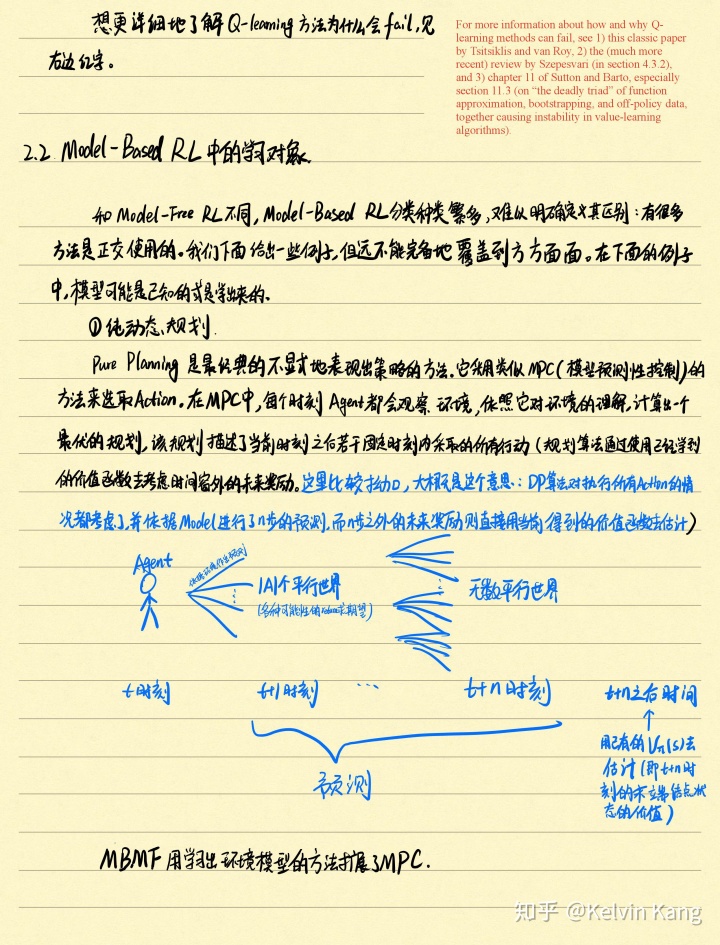 想更详细地了解Q-learning方法为什么会fail,见
右边红字。
For more information about how and why Q-
learning methods can fail, see 1) this classic paper
by Tsitsiklis and van Roy, 2) the (much more
recent) review by Szepesvari (in section 4.3.2),
and 3) chapter 11 of Sutton and Barto, especially
section 11.3 (on “the deadly triad” of function
approximation, bootstrapping, and off-policy data,
together causing instability in value-learning
algorithms).
2.2 Model-Based RL中的学习对象
和Model-Free RL不同,Model-Based RL分类种类繁多,难以明确定义其区别:有很多
方法是正交使用的。我们下面给出一些例子,但远不能完备地覆盖到方方面面。在下面的例子
中,模型可能是已知的或是学出来的。
①纯动态规划.
Pure Planning是最经典的不显式地表现出策略的方法.它采用类似MPC(模型预测性控制)的
方法来选取Action。在MPC中,每个时刻Agent都会观察环境,依照它对环境的理解,计算出一个
最优的规划,该规划描述了当前时刻之后若干固定时刻内采取的所有行动(规划算法通过使用已经学到
的价值函数去考虑时间窗外的未来奖励。这里比较拗口,大概就是这个意思:DP算法对执行所有Action的情
况都考虑了,并依据Model进行了n步的预测,而n步之外的未来奖励则直接用当前得到的价值函数去估计)
Agent
|A|个平行世界
无数平行世界
t时刻 t+1时刻 ... t+n时刻 t+n之后时间
预测
用已有的Vπ(s)去
估计(即t+n时
刻的末端结点状
态的价值)
MBMF用学习出环境模型的方法扩展了MPC.
知乎 @Kelvin Kang